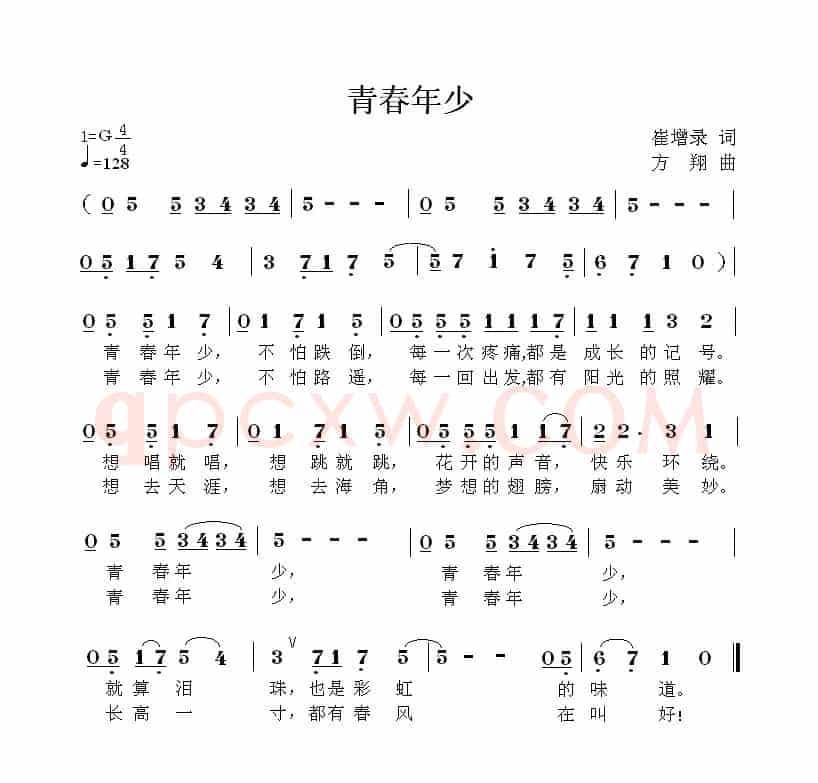 青春年少
1=G 4/4
崔增录 词
♩=128
方 翔 曲
( 0 5 5 3 4 3 4 | 5 - - - | 0 5 5 3 4 3 4 | 5 - - - |
0 5 1 7 5 4 | 3 7 1 7 5 | 5 7 1 7 5 | 6 7 1 0 ) |
0 5 5 1 7 | 0 1 7 1 5 | 0 5 5 5 1 1 1 7 | 1 1 1 3 2 |
青 春年 少， 不 怕跌 倒， 每一次疼痛,都是 成长 的记 号。
青 春年 少， 不 怕路 遥， 每一回出发,都有 阳光 的照 耀。
qpcxw.COM
0 5 5 1 7 | 0 1 7 1 5 | 0 5 5 5 1 1 7 | 2 2 · 3 1 |
想 唱就 唱， 想 跳就 跳， 花开的声音， 快乐 环 绕。
想 去天 涯， 想 去海 角， 梦想的翅膀， 扇动 美 妙。
0 5 5 3 4 3 4 | 5 - - - | 0 5 5 3 4 3 4 | 5 - - - |
青 春年 少， 青 春年 少，
青 春年 少， 青 春年 少，
0 5 1 7 5 4 | 3 V 7 1 7 5 | 5 - - 0 5 | 6 7 1 0 ‖
就算 泪 珠，也是彩 虹 的 味 道。
长高 一 寸，都有春 风 在 叫 好！